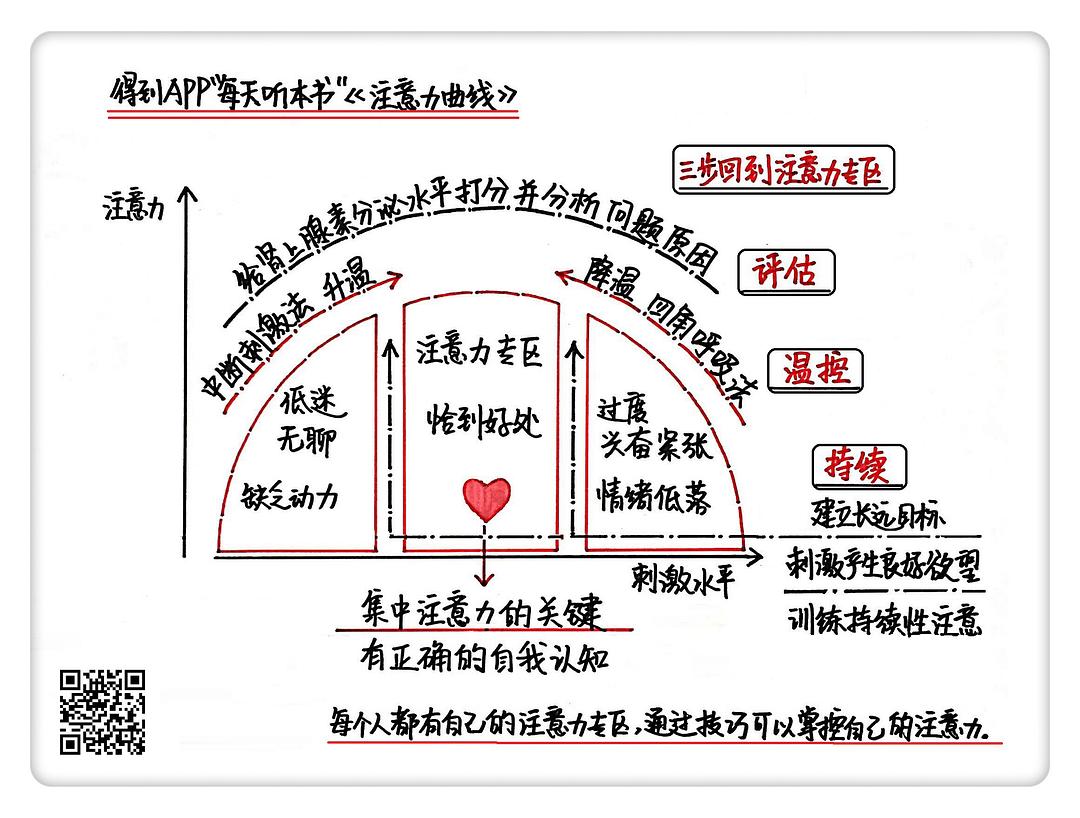 得到APP"每天听本书"《注意力曲线》
三步回到注意力专区
注意力
给肾上腺素分泌水平打分并分析问题原因
评估
中断刺激法 升温
降温 四角呼吸法
温控
注意力专区
恰到好处
低迷
无聊
缺乏动力
过度
兴奋紧张
情绪低落
持续
建立长远目标
刺激产生良好欲望
训练持续性注意
刺激水平
集中注意力的关键
有正确的自我认知
每个人都有自己的注意力专区,通过技巧可以掌控自己的注意力。